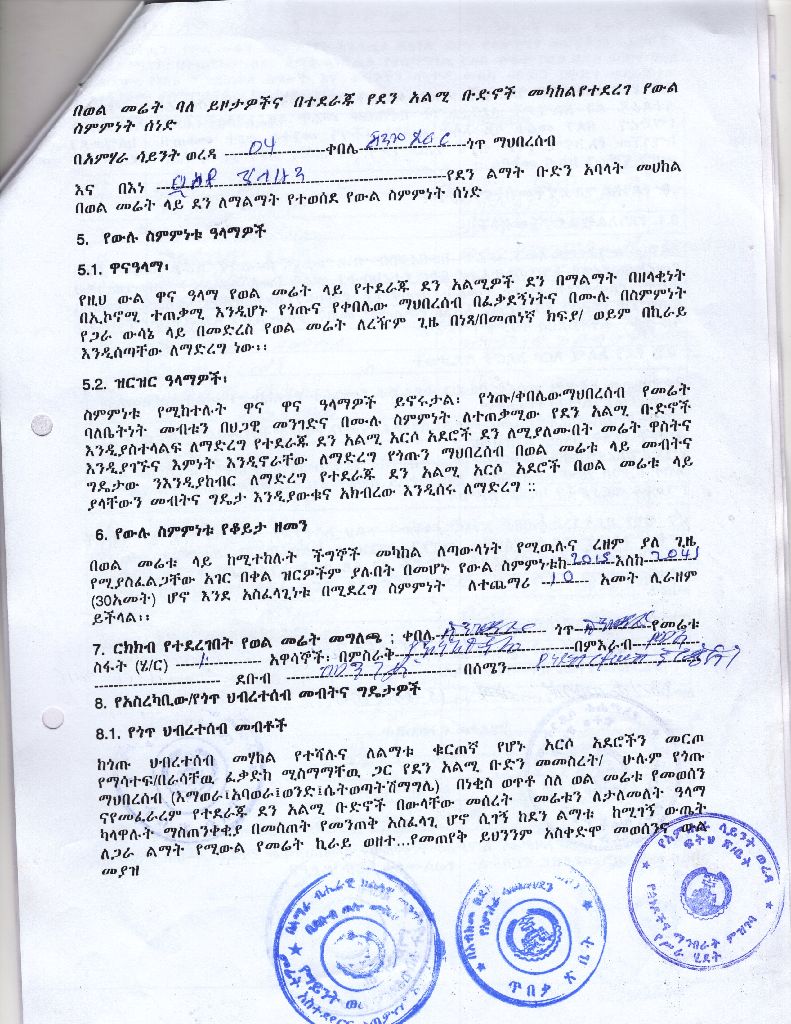 በወል መሬት ባለ ይዞታዎችና በተደራጁ የደን አልሚ ቡድኖች መካከልየተደረገ የውል
ስምምነት ሰነድ
በአምሃራ ሳይንት ወረዳ 04 ቀበሌ ጎጥ ማህበረሰብ
እና በእነ የደን ልማት ቡድን አባላት መሀከል
በወል መሬት ላይ ደን ለማልማት የተወሰደ የውል ስምምነት ሰነድ
5. የውሉ ስምምነቱ ዓላማዎች
5.1. ዋናዓላማ፡
የዚህ ውል ዋና ዓላማ የወል መሬት ላይ የተደራጁ ደን አልሚዎች ደን በማልማት በዘላቂነት
በኢኮኖሚ ተጠቃሚ እንዲሆኑ የጎጡና የቀበሌው ማህበረሰብ በፈቃደኝነትና በሙሉ በስምምነት
የጋራ ውሳኔ ላይ በመድረስ የወል መሬት ለረዥም ጊዜ በነጻ/በመጠነኛ ክፍያ/ ወይም በኪራይ
እንዲሰጣቸው ለማድረግ ነው፡፡
5.2. ዝርዝር ዓላማዎች፡
ስምምነቱ የሚከተሉት ዋና ዋና ዓላማዎች ይኖሩታል፡ የጎጡ/ቀበሌውማህበረሰብ የመሬት
ባለቤትነት መብቱን በህጋዊ መንገድና በሙሉ ስምምነት ለተጠቃሚው የደን አልሚ ቡድኖች
እንዲያስተላልፍ ለማድረግ የተደራጁ ደን አልሚ አርሶ አደሮች ደን ለሚያለሙበት መሬት ዋስትና
እንዲያገኙና እምነት እንዲኖራቸው ለማድረግ የጎጡን ማህበረሰብ በወል መሬቱ ላይ መብትና
ግዴታው ንእንዲያከብር ለማድረግ የተደራጁ ደን አልሚ አርሶ አደሮች በወል መሬቱ ላይ
ያላቸውን መብትና ግዴታ እንዲያውቁና አክብረው እንዲሰሩ ለማድረግ ።
6. የውሉ ስምምነቱ የቆይታ ዘመን
በወል መሬቱ ላይ ከሚተከሉት ችግኞች መካከል ለጣውላነት የሚዉሉና ረዘም ያለ ጊዜ
የሚያስፈልጋቸው አገር በቀል ዝርዎችም ያሉበት በመሆኑ የውል ስምምነቱከ 2015 እስከ 2045
(30አመት) ሆኖ እንደ አስፈላጊነቱ በሚደረግ ስምምነት ለተጨማሪ 10 አመት ሊራዘም
ይችላል፡፡
7. ርክክብ የተደረገበት የወል መሬት መግለጫ ; ቀበሌ ጎጥ የመሬቱ
ስፋት (ሄ/ር) 1 አዋሳኞች፡ በምስራቅ በምእራብ
ደቡብ በሰሜን
8. የአስረካቢው/የጎጥ ህብረተሰብ መብትና ግዴታዎች
8.1. የጎጥ ህብረተሰብ መብቶች
ከጎጡ ህብረተሰብ መሃከል የተሻሉና ለልማቱ ቁርጠኛ የሆኑ አርሶ አደሮችን መርጦ
የማሳተፍ/በራሳቸዉ ፈቃድከ ሚስማማቸዉ ጋር የደን አልሚ ቡድን መመስረት/ ሁሉም የጎጡ
ማህበረሰብ (እማወራ፤አባወራ፤ወንድ፤ሴትወጣትሽማግሌ) በነቂስ ወጥቶ ስለ ወል መሬቱ የመወሰን
ናየመፈራረም የተደራጁ ደን አልሚ ቡድኖች በውላቸው መሰረት መሬቱን ለታለመለት ዓላማ
ካላዋሉት ማስጠንቀቂያ በመስጠት የመንጠቅ አስፈላጊ ሆኖ ሲገኝ ከደን ልማቱ ከሚገኝ ውጤት
ለጋራ ልማት የሚውል የመሬት ኪራይ ወዘተ...የመጠየቅ ይህንንም አስቀድሞ መወሰንና ውል
መያዝ
የአምሃራ ሳይንት ወረዳ
ፍትህ ጽ/ቤት
ጥበቃ ጽ ቤት